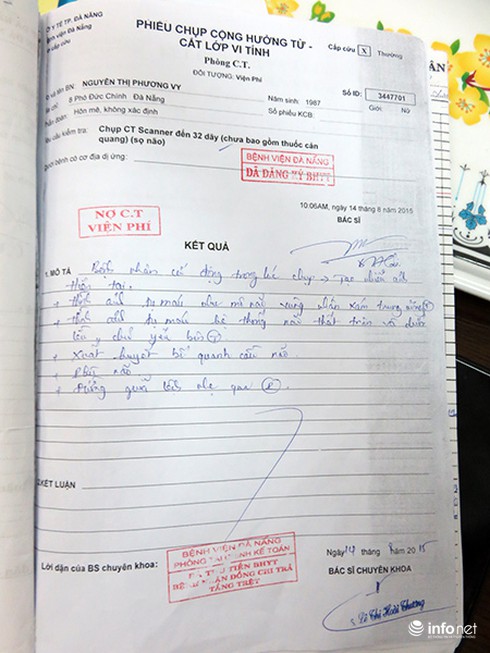 Y TẾ TP. ĐÀ NẴNG
Bệnh viện Đà Nẵng
Cấp cứu
PHIẾU CHỤP CỘNG HƯỞNG TỪ -
CẮT LỚP VI TÍNH
Phòng C.T.
ĐỐI TƯỢNG: Viện Phí
Cấp cứu X Thường
Số ID: 3447701
NGUYỄN THỊ PHƯƠNG VY
Năm sinh: 1987
Giới: Nữ
8 Phó Đức Chính Đà Nẵng
Số phiếu KCB:
Hôn mê, không xác định
cầu kiểm tra: Chụp CT Scanner đến 32 dãy (chưa bao gồm thuốc cản
quang) (sọ não)
Người bệnh có cơ địa dị ứng:
BỆNH VIỆN ĐÀ NẴNG
ĐÃ ĐĂNG KÝ BHYT
10:06AM, ngày 14 tháng 8 năm 2015
BÁC SĨ
NỢ C.T
VIỆN PHÍ
KẾT QUẢ
1. MÔ TẢ Bệnh nhân cử động trong lúc chụp → Tạo nhiễu ảnh
+ Hình ảnh tụ máu
+ Hình ảnh tụ máu hệ thống não thất trên và dưới
lều, chủ yếu bên
+ Xuất huyết bể quanh cầu não
+ Phù não
+ Đường giữa lệch nhẹ qua
2. KẾT LUẬN
BỆNH VIỆN ĐÀ NẴNG
PHÒNG TÀI CHÍNH KẾ TOÁN
ĐÃ THU TIỀN BHYT
BỆNH NHÂN ĐỒNG CHI TRẢ
TẦNG TRỆT
Lời dặn của BS chuyên khoa:
Ngày 14 tháng 8 năm 2015
BÁC SĨ CHUYÊN KHOA
infonet